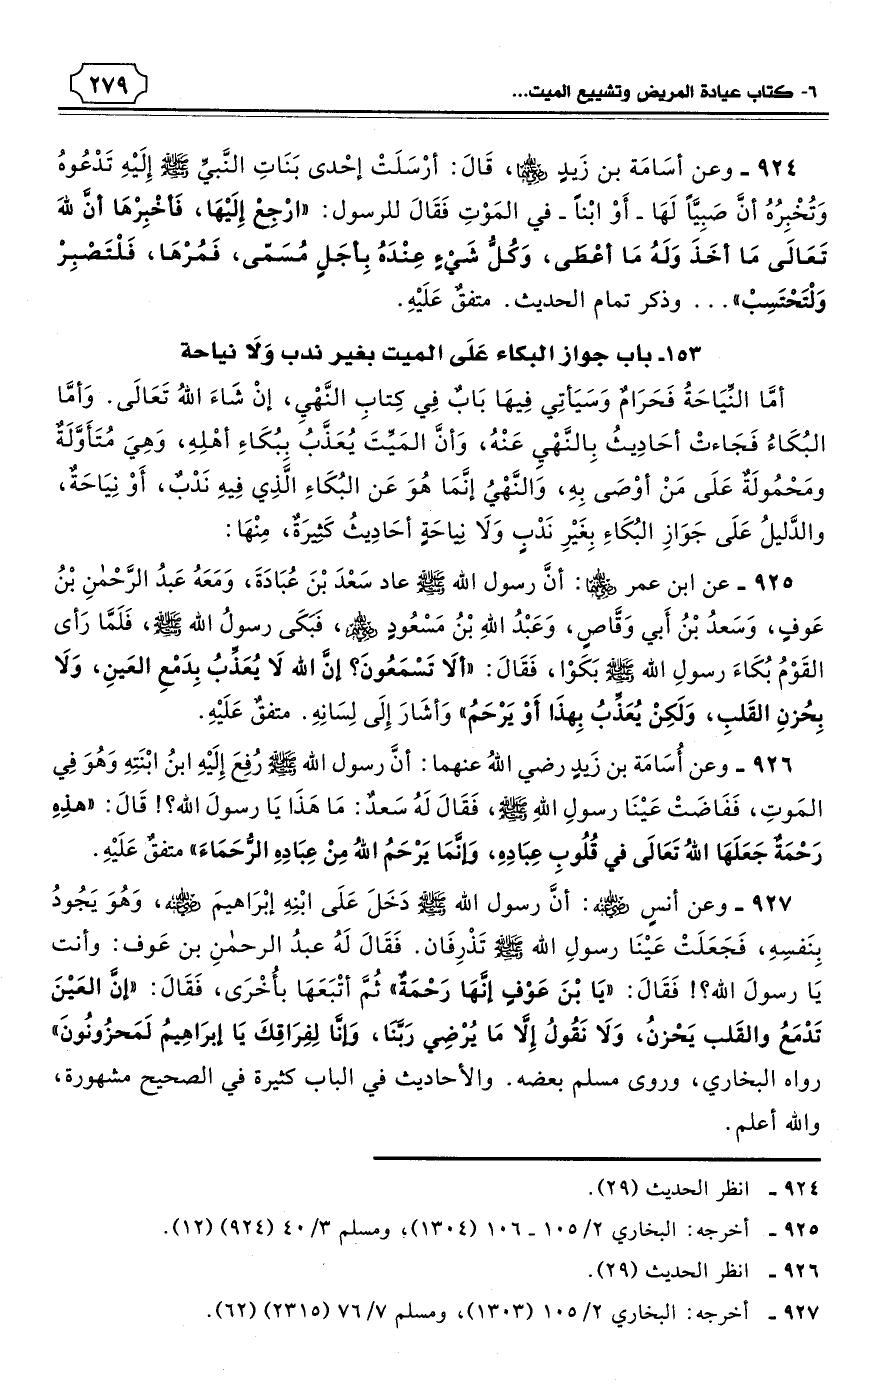 ٦- كتاب عيادة المريض وتشييع الميت...
٢٧٩
٩٢٤ ـ وعن أسَامَة بن زَيدٍ ﵄، قَالَ: أرْسَلَتْ إحْدى بَنَاتِ النَّبيِّ ﷺ إلَيْهِ تَدْعُوهُ
وَتُخْبِرُهُ أنَّ صَبِيَّاً لَهَا ـ أَوْ ابْناً ـ في المَوْتِ فَقَالَ للرسول: «ارْجِعْ إِلَيْهَا، فَأخْبِرْهَا أنَّ للهِ
تَعَالَى مَا أخَذَ وَلَهُ مَا أعْطَى، وَكُلُّ شَيْءٍ عِنْدَهُ بِأجَلٍ مُسَمّى، فَمُرْهَا، فَلْتَصْبِرْ
وَلْتَحْتَسِبْ»... وذكر تمام الحديث. متفقٌ عَلَيْهِ.
١٥٣ـ باب جواز البكاء عَلَى الميت بغير ندب وَلَا نياحة
أمَّا النِّيَاحَةُ فَحَرَامٌ وَسَيَأتِي فِيهَا بَابٌ فِي كِتابِ النَّهْيِ، إنْ شَاءَ اللهُ تَعَالَى. وَأمَّا
البُكَاءُ فَجَاءتْ أحَادِيثُ بِالنَّهْيِ عَنْهُ، وَأنَّ المَيِّتَ يُعَذَّبُ بِبُكَاءِ أهْلِهِ، وَهِيَ مُتَأَوَّلَةٌ
ومَحْمُولَةٌ عَلَى مَنْ أوْصَى بِهِ، وَالنَّهْيُ إنَّمَا هُوَ عَن البُكَاءِ الَّذِي فِيهِ نَدْبٌ، أَوْ نِيَاحَةٌ،
والدَّليلُ عَلَى جَوَازِ البُكَاءِ بِغَيْرِ نَدْبٍ وَلَا نِياحَةٍ أحَادِيثُ كَثِيرَةٌ، مِنْهَا:
٩٢٥ ـ عن ابن عمر ﵄: أنَّ رسول الله ﷺ عاد سَعْدَ بْنَ عُبَادَةَ، وَمَعَهُ عَبدُ الرَّحْمٰنِ بْنُ
عَوفٍ، وَسَعدُ بْنُ أَبي وَقَّاصٍ، وَعَبْدُ اللهِ بْنُ مَسْعُودٍ ﵃، فَبَكَى رسولُ الله ﷺ، فَلَمَّا رَأى
القَوْمُ بُكَاءَ رسولِ الله ﷺ بَكَوْا، فَقَالَ: «ألَا تَسْمَعُونَ؟ إنَّ الله لَا يُعَذِّبُ بِدَمْعِ العَينِ، وَلَا
بِحُزنِ القَلبِ، وَلَكِنْ يُعَذِّبُ بِهذَا أَوْ يَرْحَمُ» وَأشَارَ إِلَى لِسَانِهِ. متفقٌ عَلَيْهِ.
٩٢٦ ـ وعن أُسَامَة بن زَيدٍ رضي اللهُ عنهما: أنَّ رسول الله ﷺ رُفِعَ إِلَيْهِ ابنُ ابْنَتِهِ وَهُوَ فِي
المَوتِ، فَفَاضَتْ عَيْنَا رسولِ اللهِ ﷺ، فَقَالَ لَهُ سَعدٌ: مَا هَذَا يَا رسولَ الله؟! قَالَ: «هذِهِ
رَحْمَةٌ جَعَلَهَا اللهُ تَعَالَى في قُلُوبِ عِبَادِهِ، وَإنَّمَا يَرْحَمُ اللهُ مِنْ عِبَادِهِ الرُّحَمَاءَ» متفقٌ عَلَيْهِ.
٩٢٧ ـ وعن أنسٍ ﵁: أنَّ رسول الله ﷺ دَخَلَ عَلَى ابْنِهِ إبْرَاهيمَ ﵁، وَهُوَ يَجُودُ
بِنَفسِهِ، فَجَعَلَتْ عَيْنَا رسولِ الله ﷺ تَذْرِفَان. فَقَالَ لَهُ عبدُ الرحمٰنِ بن عَوف: وأنت
يَا رسولَ الله؟! فَقَالَ: «يَا بْنَ عَوْفٍ إنَّهَا رَحْمَةٌ» ثُمَّ أتْبَعَهَا بأُخْرَى، فَقَالَ: «إنَّ العَيْنَ
تَدْمَعُ والقَلب يَحْزنُ، وَلَا نَقُولُ إِلَّا مَا يُرْضِي رَبَّنَا، وَإنَّا لِفِرَاقِكَ يَا إبرَاهِيمُ لَمَحزُونُونَ»
رواه البخاري، وروى مسلم بعضه. والأحاديث في الباب كثيرة في الصحيح مشهورة،
والله أعلم.
٩٢٤ ـ انظر الحديث (٢٩).
٩٢٥ ـ أخرجه: البخاري ١٠٥/٢ ـ ١٠٦ (١٣٠٤)، ومسلم ٤٠/٣ (٩٢٤) (١٢).
٩٢٦ ـ انظر الحديث (٢٩).
٩٢٧ ـ أخرجه: البخاري ١٠٥/٢ (١٣٠٣)، ومسلم ٧٦/٧ (٢٣١٥) (٦٢).